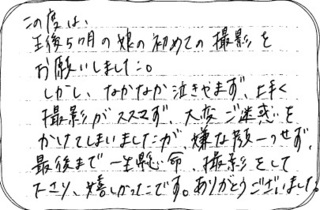 この度は、
生後5ヶ月の娘の初めての撮影を
お願いしました。
しかし、なかなか泣きやまず、上手く
撮影がススマず、大変ご迷惑を
かけてしまいましたが、嫌な顔一つせず、
最後まで一生懸命、撮影をして
下さり、嬉しかったです。ありがとうございました。